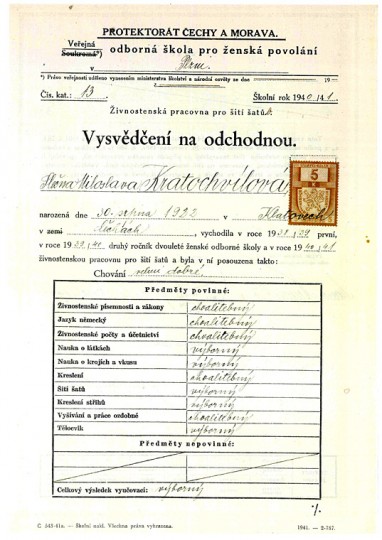 PROTEKTORÁT ČECHY A MORAVA.
Veřejná
Soukromá*) odborná škola pro ženská povolání
v Plzni
*) Právo veřejnosti uděleno vynesením ministerstva školství a národní osvěty ze dne 19
Čís. kat.: 13. Školní rok 1940/41.
Živnostenská pracovna pro šití šatů.
Vysvědčení na odchodnou.
Slečna Miloslava Kratochvílová
5
K
narozená dne 30. srpna 1922 v Klatovech
v zemi Čechách, vychodila v roce 1938/39 první,
v roce 1939/40 druhý ročník dvouleté ženské odborné školy a v roce 1940/41
živnostenskou pracovnu pro šití šatů a byla v ní posouzena takto:
Chování velmi dobré.
Předměty povinné:
Živnostenské písemnosti a zákony chvalitebný
Jazyk německý chvalitebný
Živnostenské počty a účetnictví chvalitebný
Nauka o látkách výborný
Nauka o krojích a vkusu výborný
Kreslení chvalitebný
Šití šatů výborný
Kreslení střihů výborný
Vyšívání a práce ozdobné chvalitebný
Tělocvik výborný
Předměty nepovinné:
Celkový výsledek vyučovací: výborný
Školní nakl. Všechna práva vyhrazena. 1941.